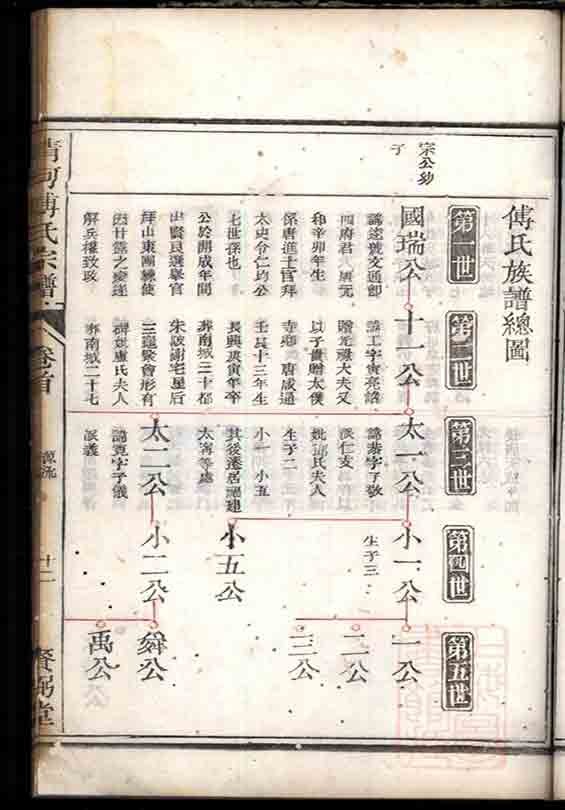 傅氏族譜總圖
第一世
第二世
第三世
第四世
第五世
宗公幼
子
國瑞公
十一公
太一公
小一公
一公
諱工字寅亮諡
贈光祿大夫又
以子貴贈太僕
寺卿 唐咸通
壬辰十三年生
長興庚寅年卒
葬南城三十都
朱陂謝宅星后
三龍聚會形有
碑娶盧氏夫人
葬南城二十七
和辛卯年生
保唐進士官拜
太史令仁均公
七世孫也
公於開成年間
出賢良選舉官
拜山東團練使
因甘露之變遂
解兵權致政
派仁支
妣鄒氏夫人
生子二
小一 小五
其後遷居福建
太寧等處
太二公
諱寬字子儀
派義
生子三
小五公
小二公
二公
三公
舜公
禹公
清河傅氏宗譜
卷首
源流
十二
賚弼堂